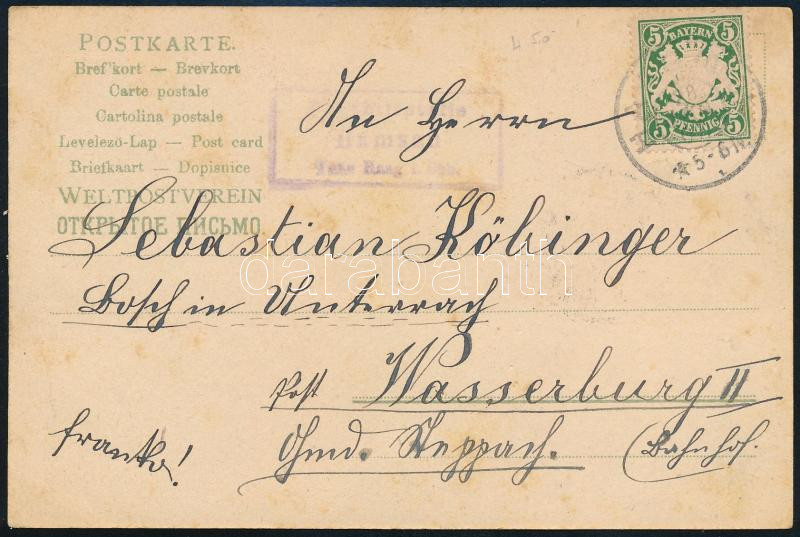 POSTKARTE.
Bref'kort — Brevkort
Carte postale
Cartolina postale
Levelező-Lap — Post card
Briefkaart — Dopisnice
WELTPOSTVEREIN
ОТКРЫТОЕ ПИСЬМО.
4 50
BAYERN
5 5
5 5
PFENNIG
5-6 N.
Haag i. Obb.
An Herrn
Sebastian Köbinger
darabanth
Bosch in Unterrach
Post Wasserburg II
franko!
Ghmd. Steppach.
(Bahnhof.